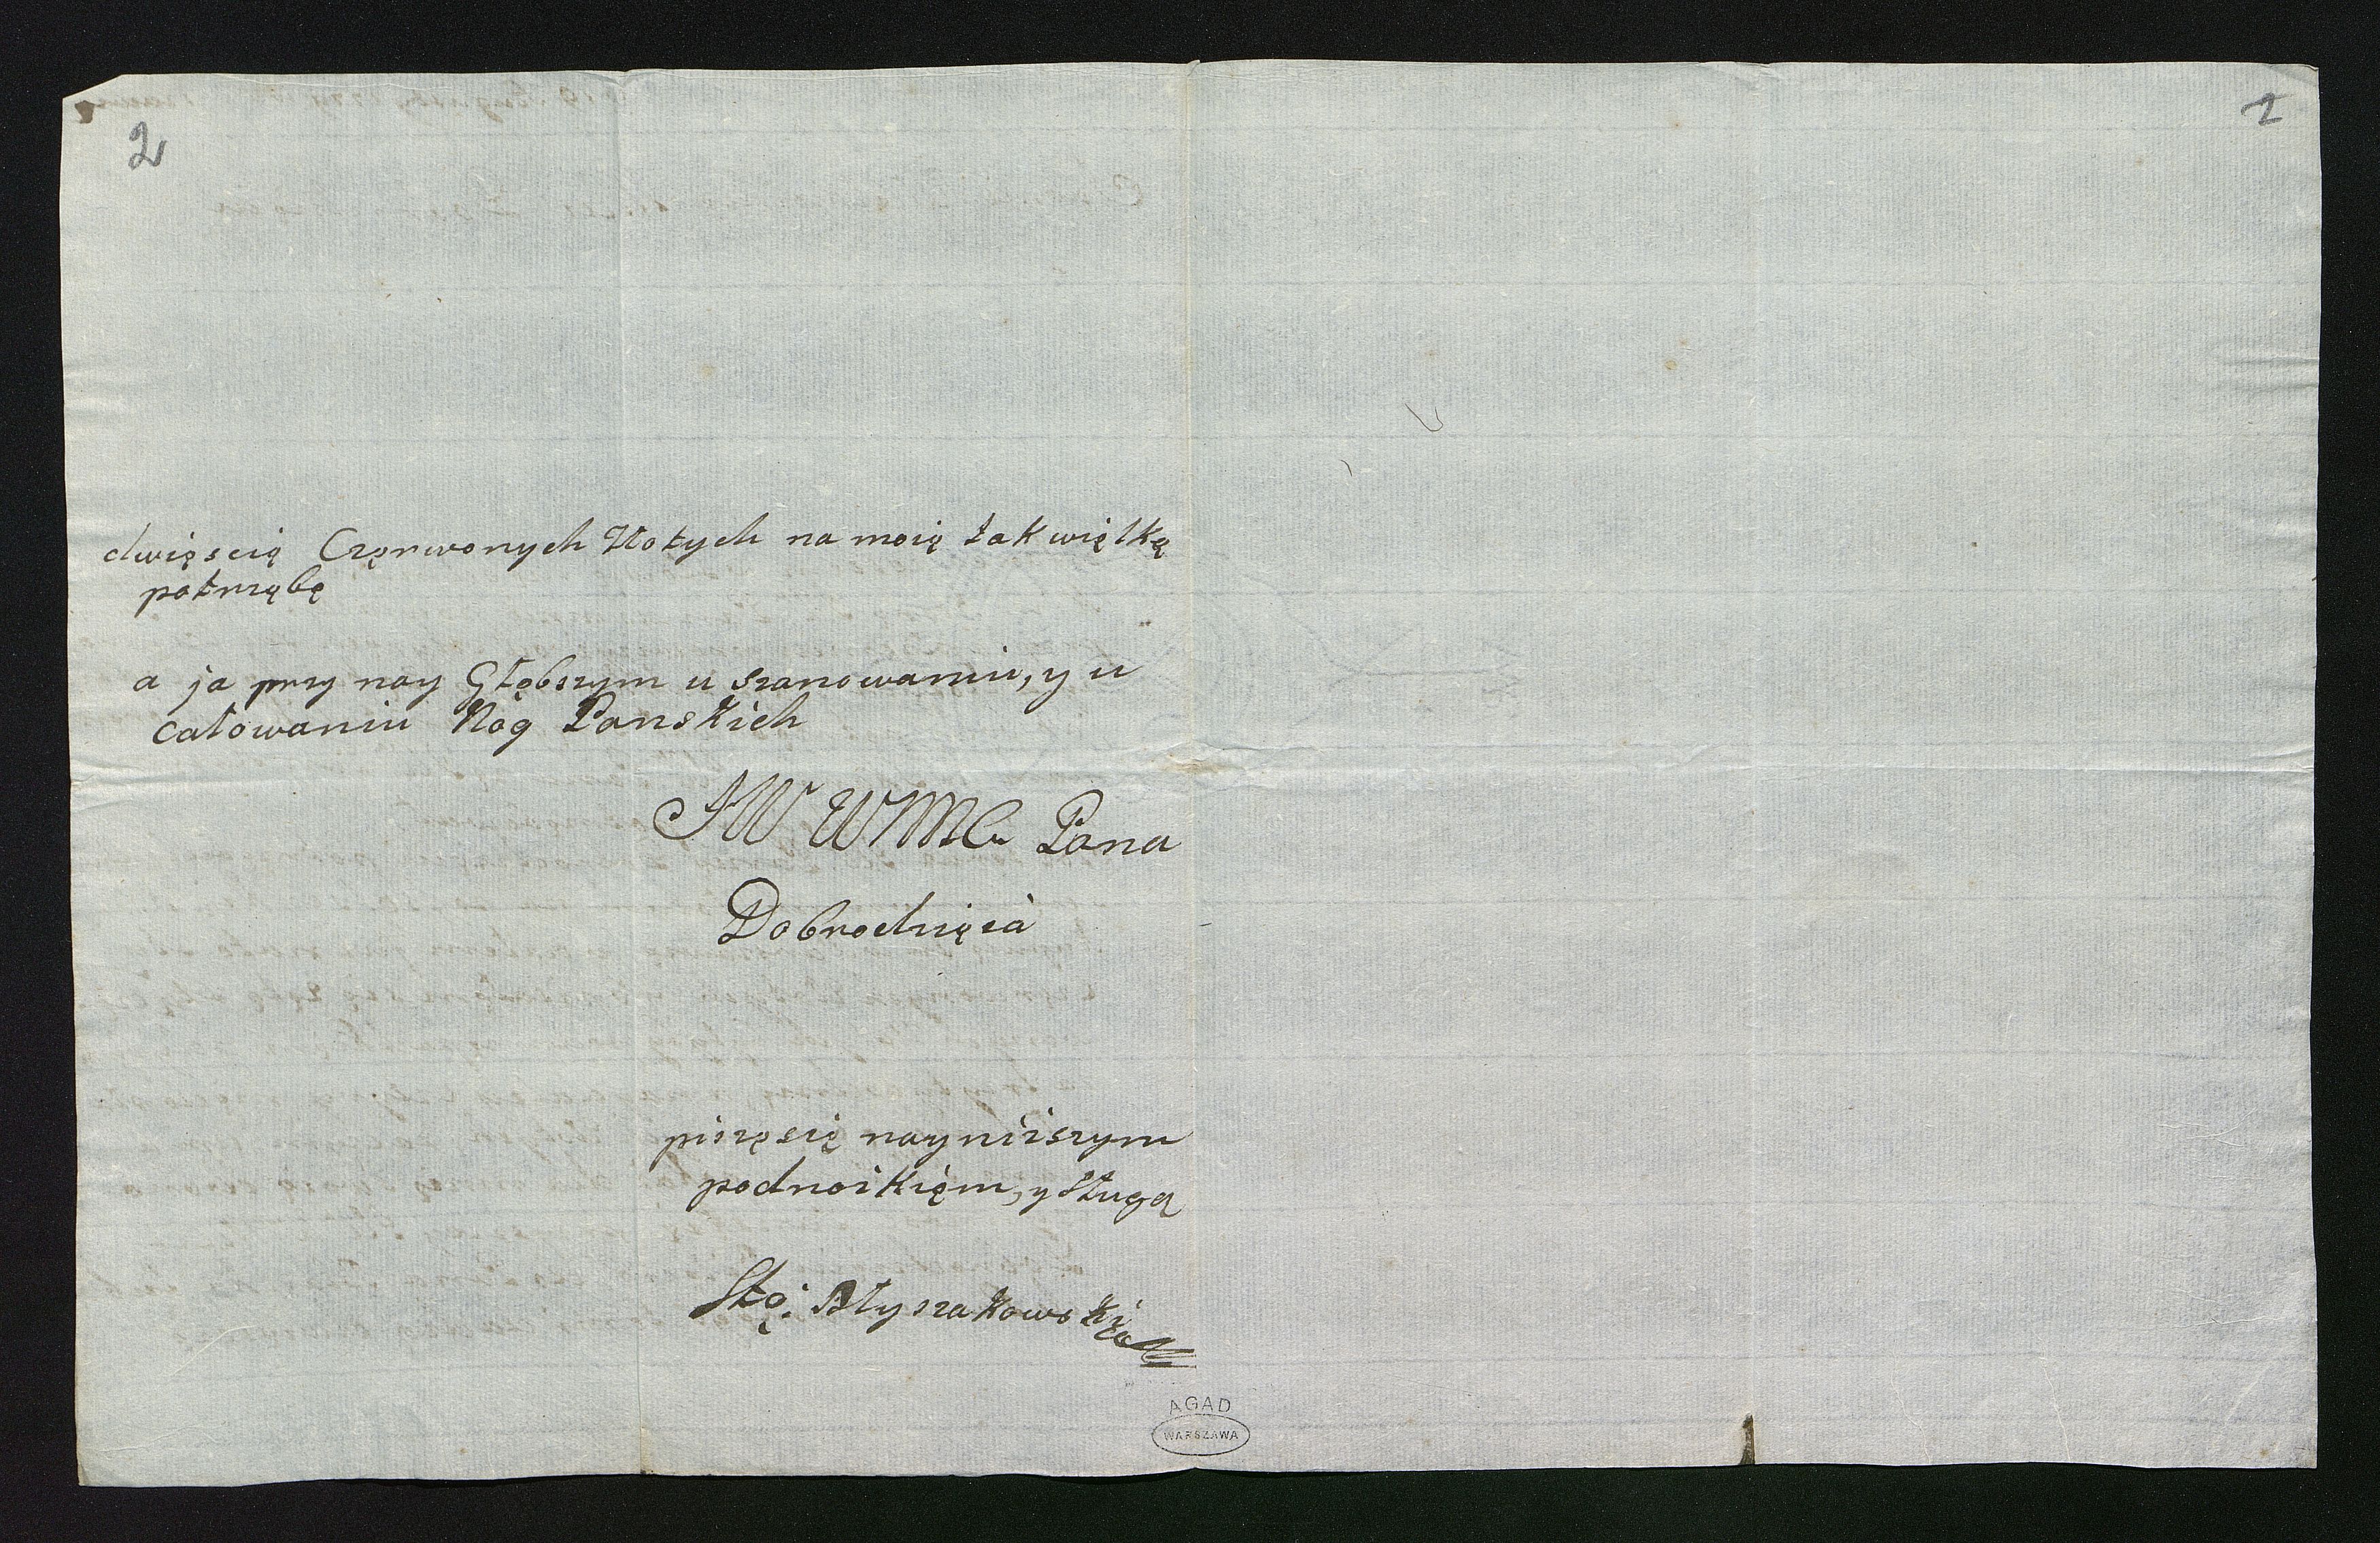 2
1
dwięscię Częrwonych Złotych na moię tak więlkę
potrzębę
a ja przy nay Głębszym u szanowaniu, y u
całowaniu Nóg Panskich
JW WMC Pana
Dobrodzięia
piszę się nayniższym
podnożkięm, y sługą
Stę: Błyszakowski
AGAD
WARSZAWA